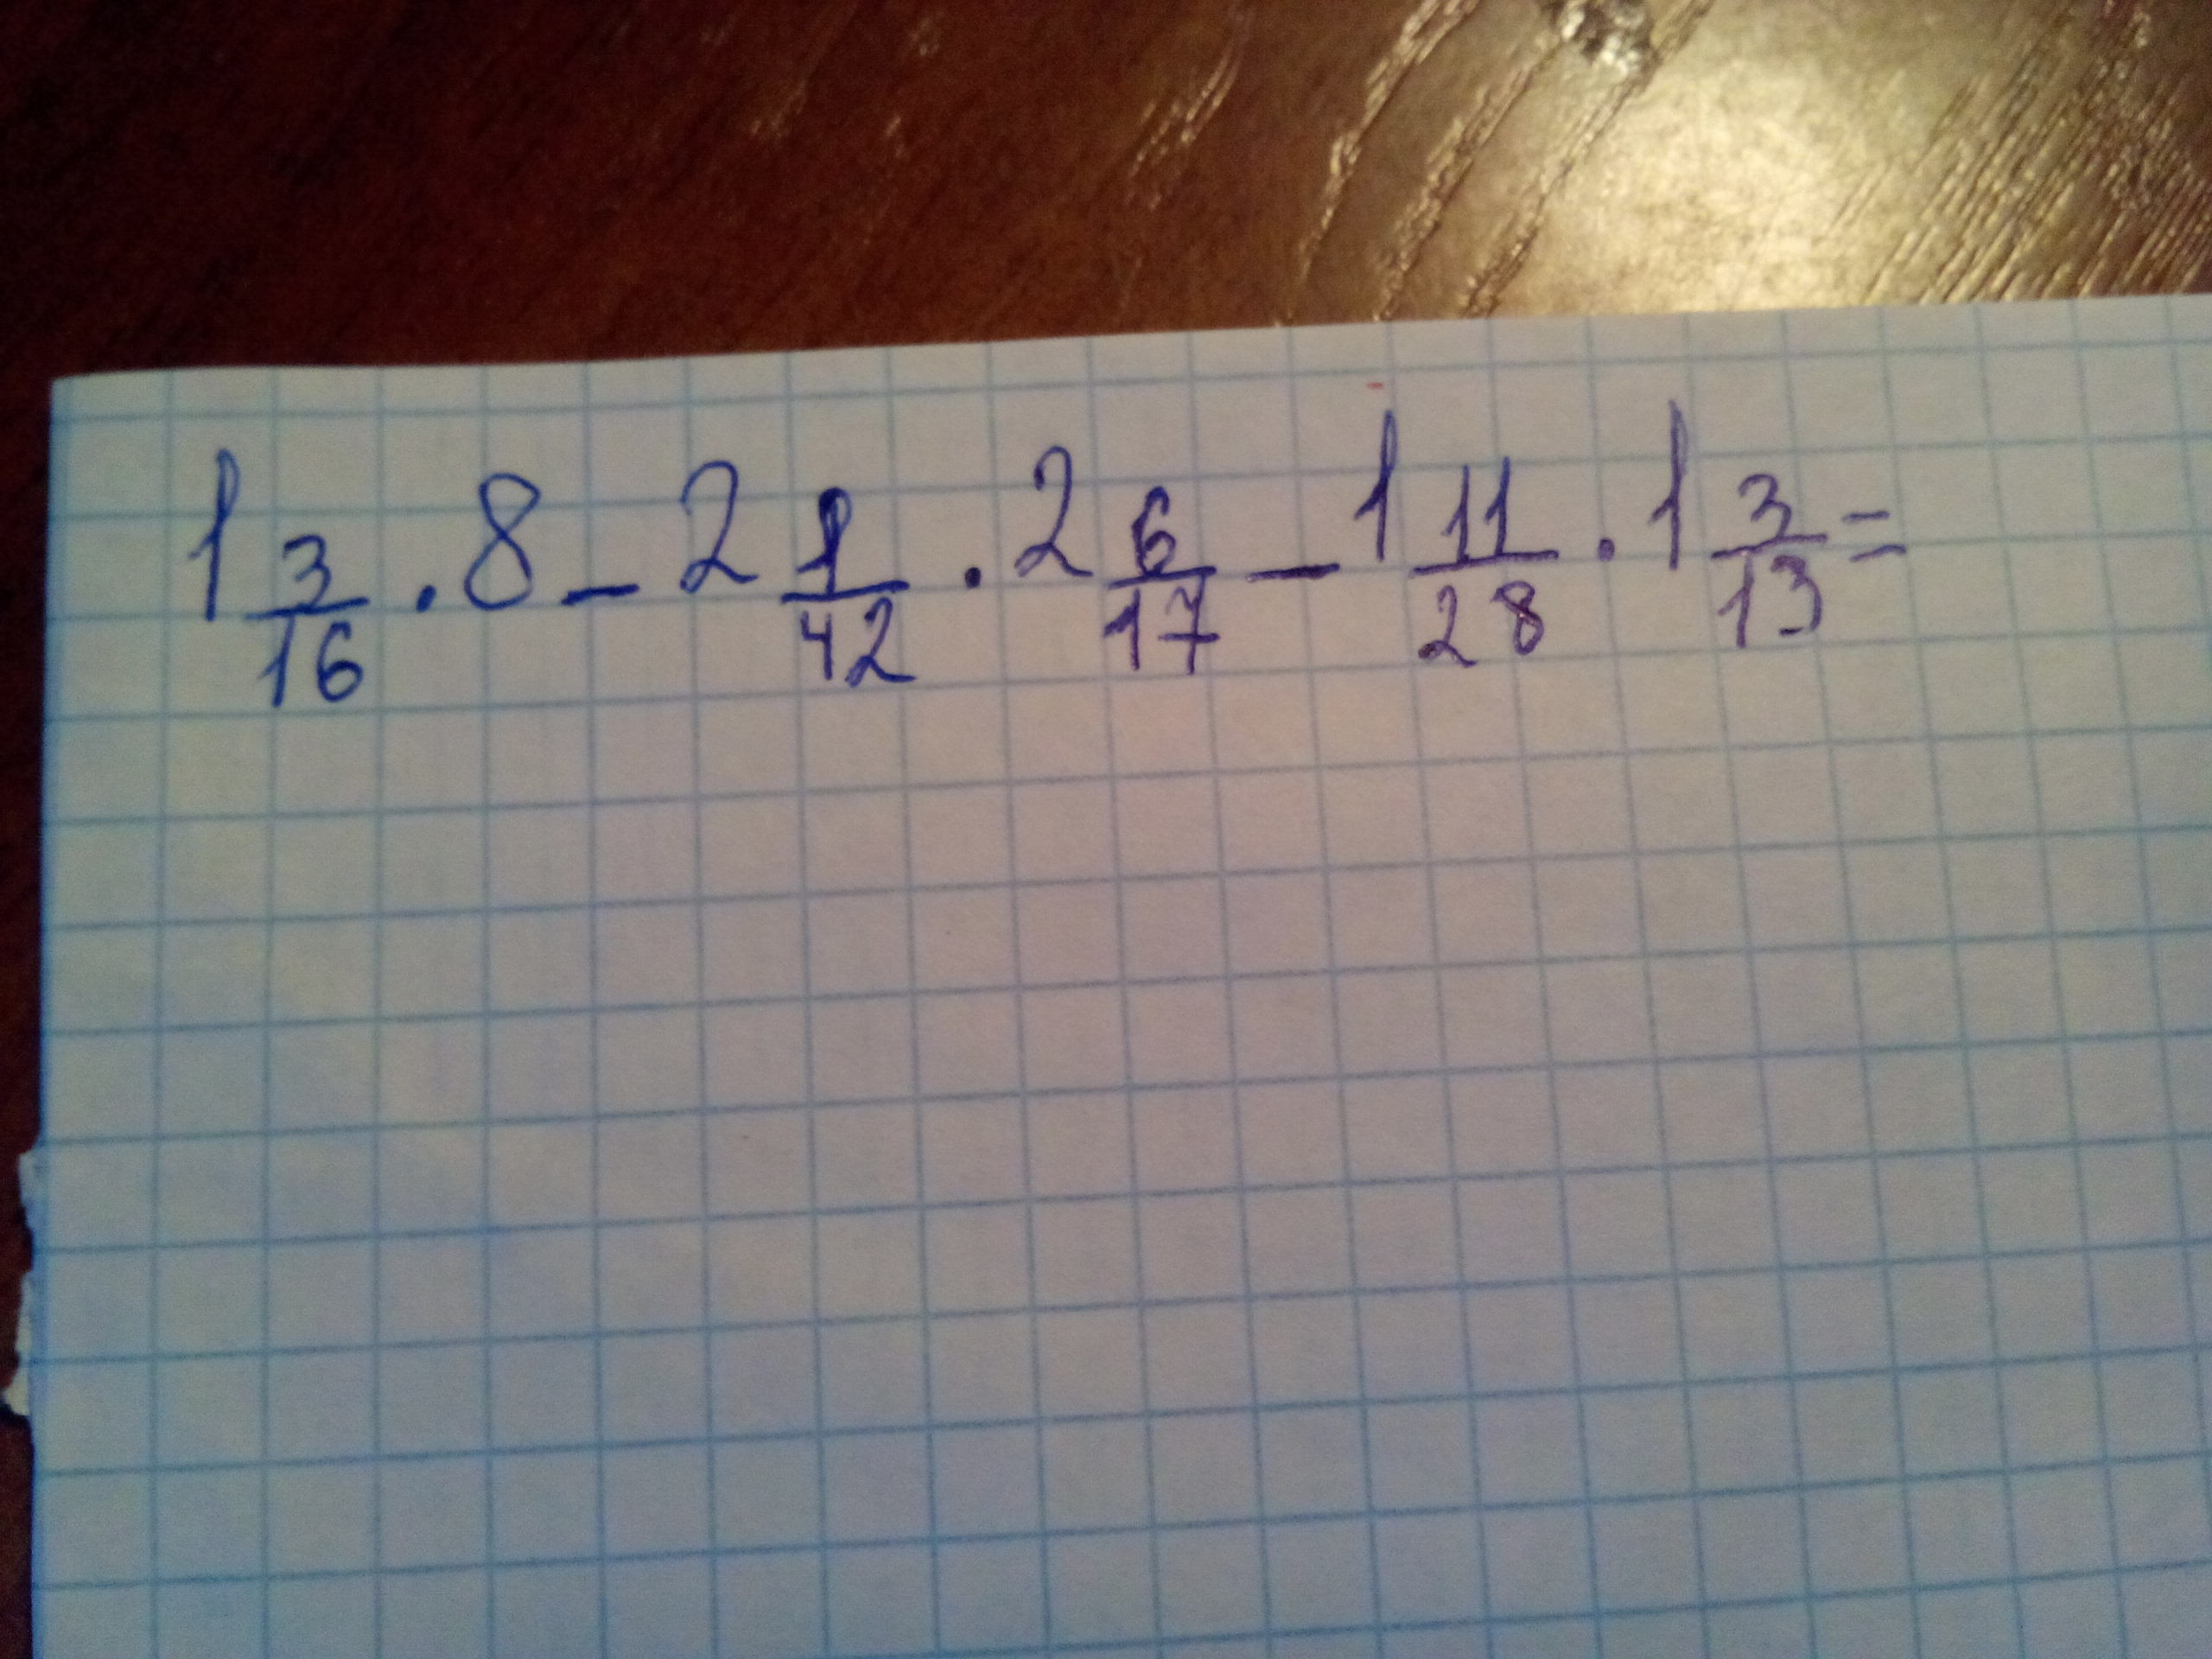 1 3/16 · 8 - 2 1/42 · 2 6/17 - 1 11/28 · 1 3/13 =